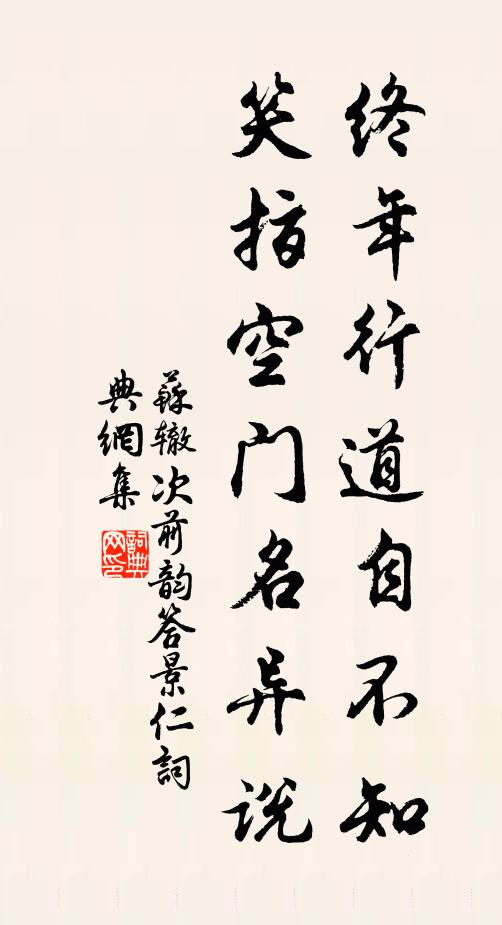 终年行道自不知
笑指空门名异说
蘇辙次前韵答景仁詞
典網集
詞典
网印